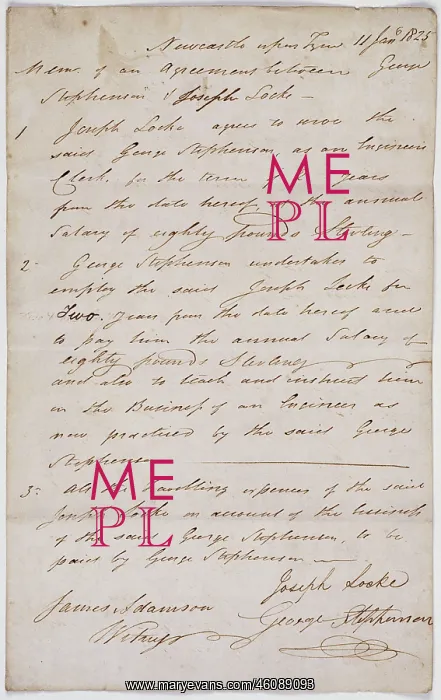 Newcastle upon Tyne 11 Jany 1825
Mem. of an Agreement between George
Stephenson & Joseph Locke —
1 Joseph Locke agrees to serve the
said George Stephenson as an Engineers
Clerk, for the term years
from the date hereof the annual
Salary of eighty pounds Sterling —
2 George Stephenson undertakes to
employ the said Joseph Locke for
Two. Years from the date hereof and
to pay him the annual Salary of
eighty pounds Sterling
and also to teach and instruct him
in the Business of an Engineer as
now practised by the said George
Stephenson
3 All travelling expences of the said
Joseph Locke on account of the business
of the said George Stephenson, to be
paid by George Stephenson —
Joseph Locke
James Adamson George Stephenson
Witness
ME
PL
ME
PL
www.maryevans.com/46089093